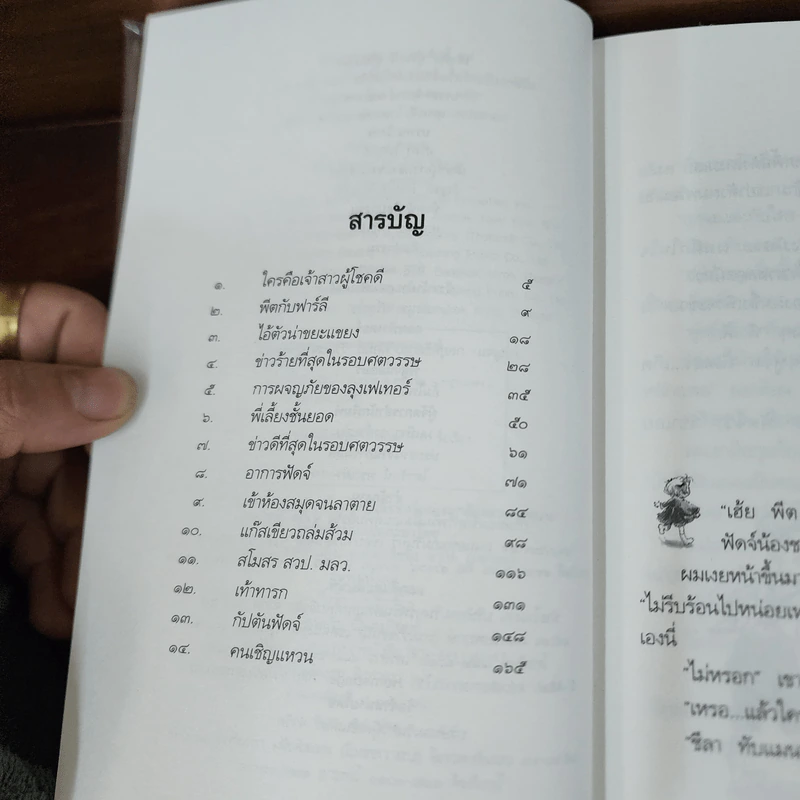 สารบัญ
๑. ใครคือเจ้าสาวผู้โชคดี ๕
๒. พีตกับฟาร์ลี ๙
๓. ไอ้ตัวน่าขยะแขยง ๑๘
๔. ข่าวร้ายที่สุดในรอบศตวรรษ ๒๘
๕. การผจญภัยของลุงเฟเทอร์ ๓๕
๖. พี่เลี้ยงชั้นยอด ๕๐
๗. ข่าวดีที่สุดในรอบศตวรรษ ๖๑
๘. อาการฟัดจ์ ๗๑
๙. เข้าห้องสมุดจนลาตาย ๘๔
๑๐. แก๊สเขียวถล่มส้วม ๙๘
๑๑. สโมสร สวป. มลว. ๑๑๖
๑๒. เท้าทารก ๑๓๑
๑๓. กัปตันฟัดจ์ ๑๔๘
๑๔. คนเชิญแหวน ๑๖๕
"เฮ้ย พีต
ฟัดจ์น้องช
ผมเงยหน้าขึ้นมา
"ไม่รีบร้อนไปหน่อยเห
เองนี่
"ไม่หรอก" เขา
"เหรอ...แล้วใคร
"ชีลา ทับแมน